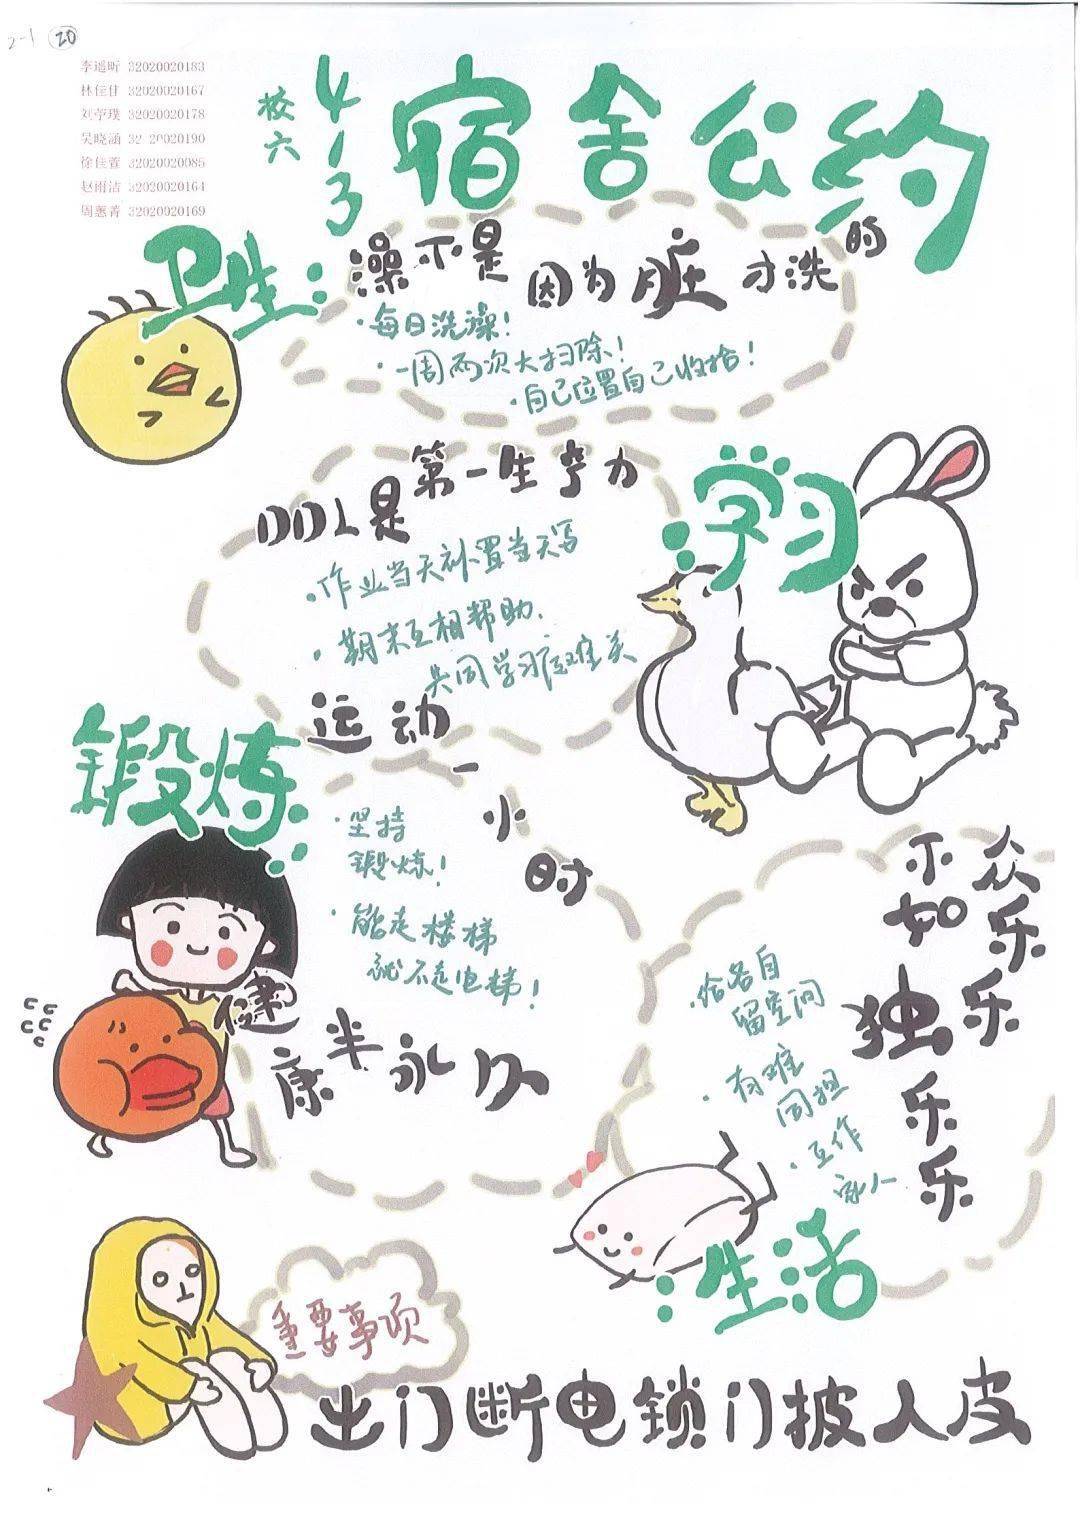 2-1 20
李遥昕 32020020183
林佳甘 32020020167
刘苧璞 32020020178
吴晓涵 32 20020190
徐佳萱 32020020085
赵雨洁 32020020164
周蕙菁 32020020169
校六
413
宿舍公约
卫生:
澡不是因为脏才洗的
·每日洗澡!
·一周两次大扫除!
·自己位置自己收拾!
学习:
DDL是第一生产力
·作业当天补置当天写
·期末互相帮助.
共同学习 难关
锻炼:
运动一小时
健康半永久
·坚持
锻炼!
·能走楼梯
就不走电梯!
生活:
众乐乐
不如独乐乐
·给各自
留空间
·有难
同担
·互作
家人
重要事项
出门断电锁门披人皮